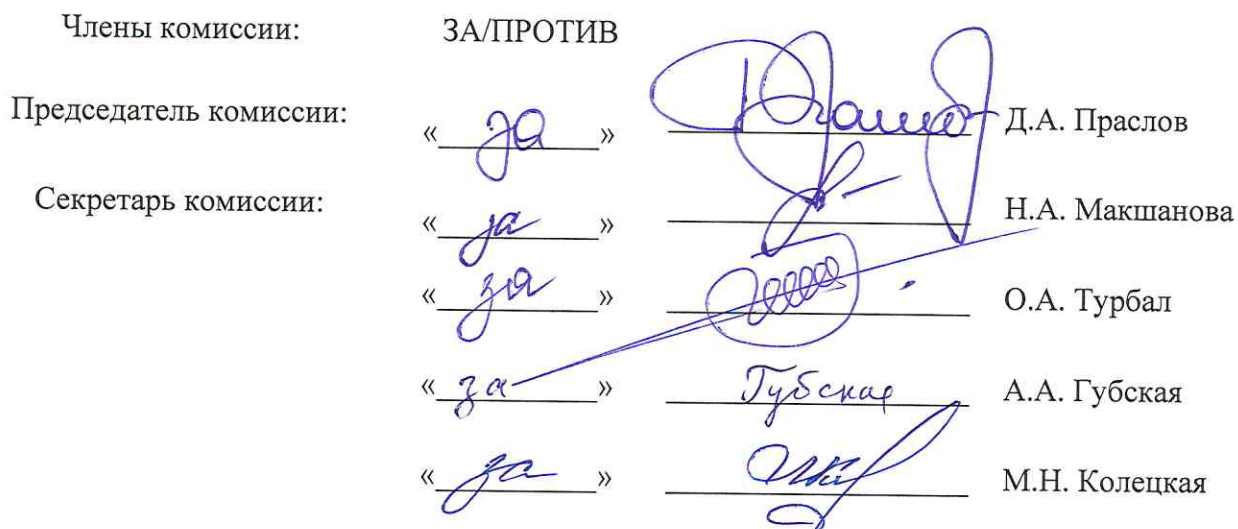 Члены комиссии: ЗА/ПРОТИВ
Председатель комиссии: « за » Д.А. Праслов
Секретарь комиссии: « за » Н.А. Макшанова
« за » О.А. Турбал
« за » Губская А.А. Губская
« за » М.Н. Колецкая